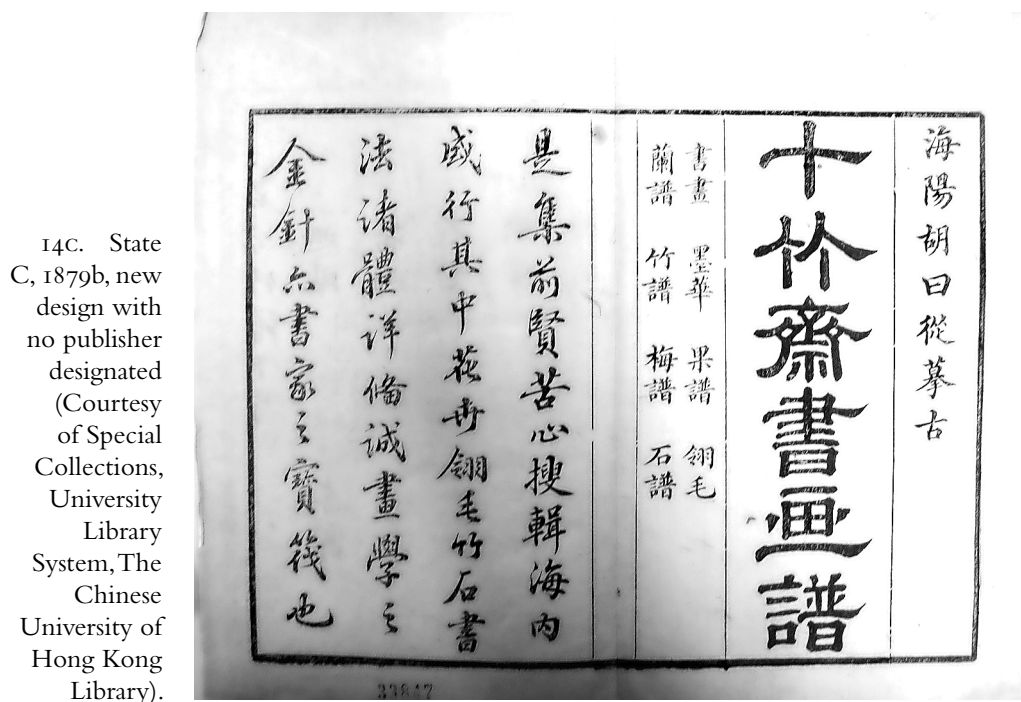 14C. State
C, 1879b, new
design with
no publisher
designated
(Courtesy
of Special
Collections,
University
Library
System, The
Chinese
University of
Hong Kong
Library).
海陽胡曰從摹古
十竹齋書画譜
書畫 墨華 果譜 翎毛
蘭譜 竹譜 梅譜 石譜
是集前賢苦心搜輯海內
盛行其中花卉翎毛竹石書
法諸體詳備誠畫學之
金針亦書家之寶筏也
33847